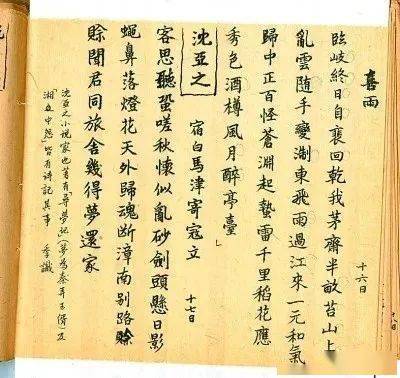 喜雨
十六日
臨岐終日自裵回乾我茅齋半畝苔山上
亂雲隨手變淛東飛雨過江來一元和氣
歸中正百怪蒼淵起蟄雷千里稻花應
秀色酒樽風月醉亭臺
沈亞之
宿白馬津寄寇立
十七日
客思聽蛩嗟秋懷似亂砂劍頭懸日影
蠅鼻落燈花天外歸魂斷漳南别路賒
賒聞君同旅舍幾得夢還家
沈亞之小説家也著有「尋夢記(夢為秦弄玉偦)」及
「湘中怨」皆有诗記其事 季識